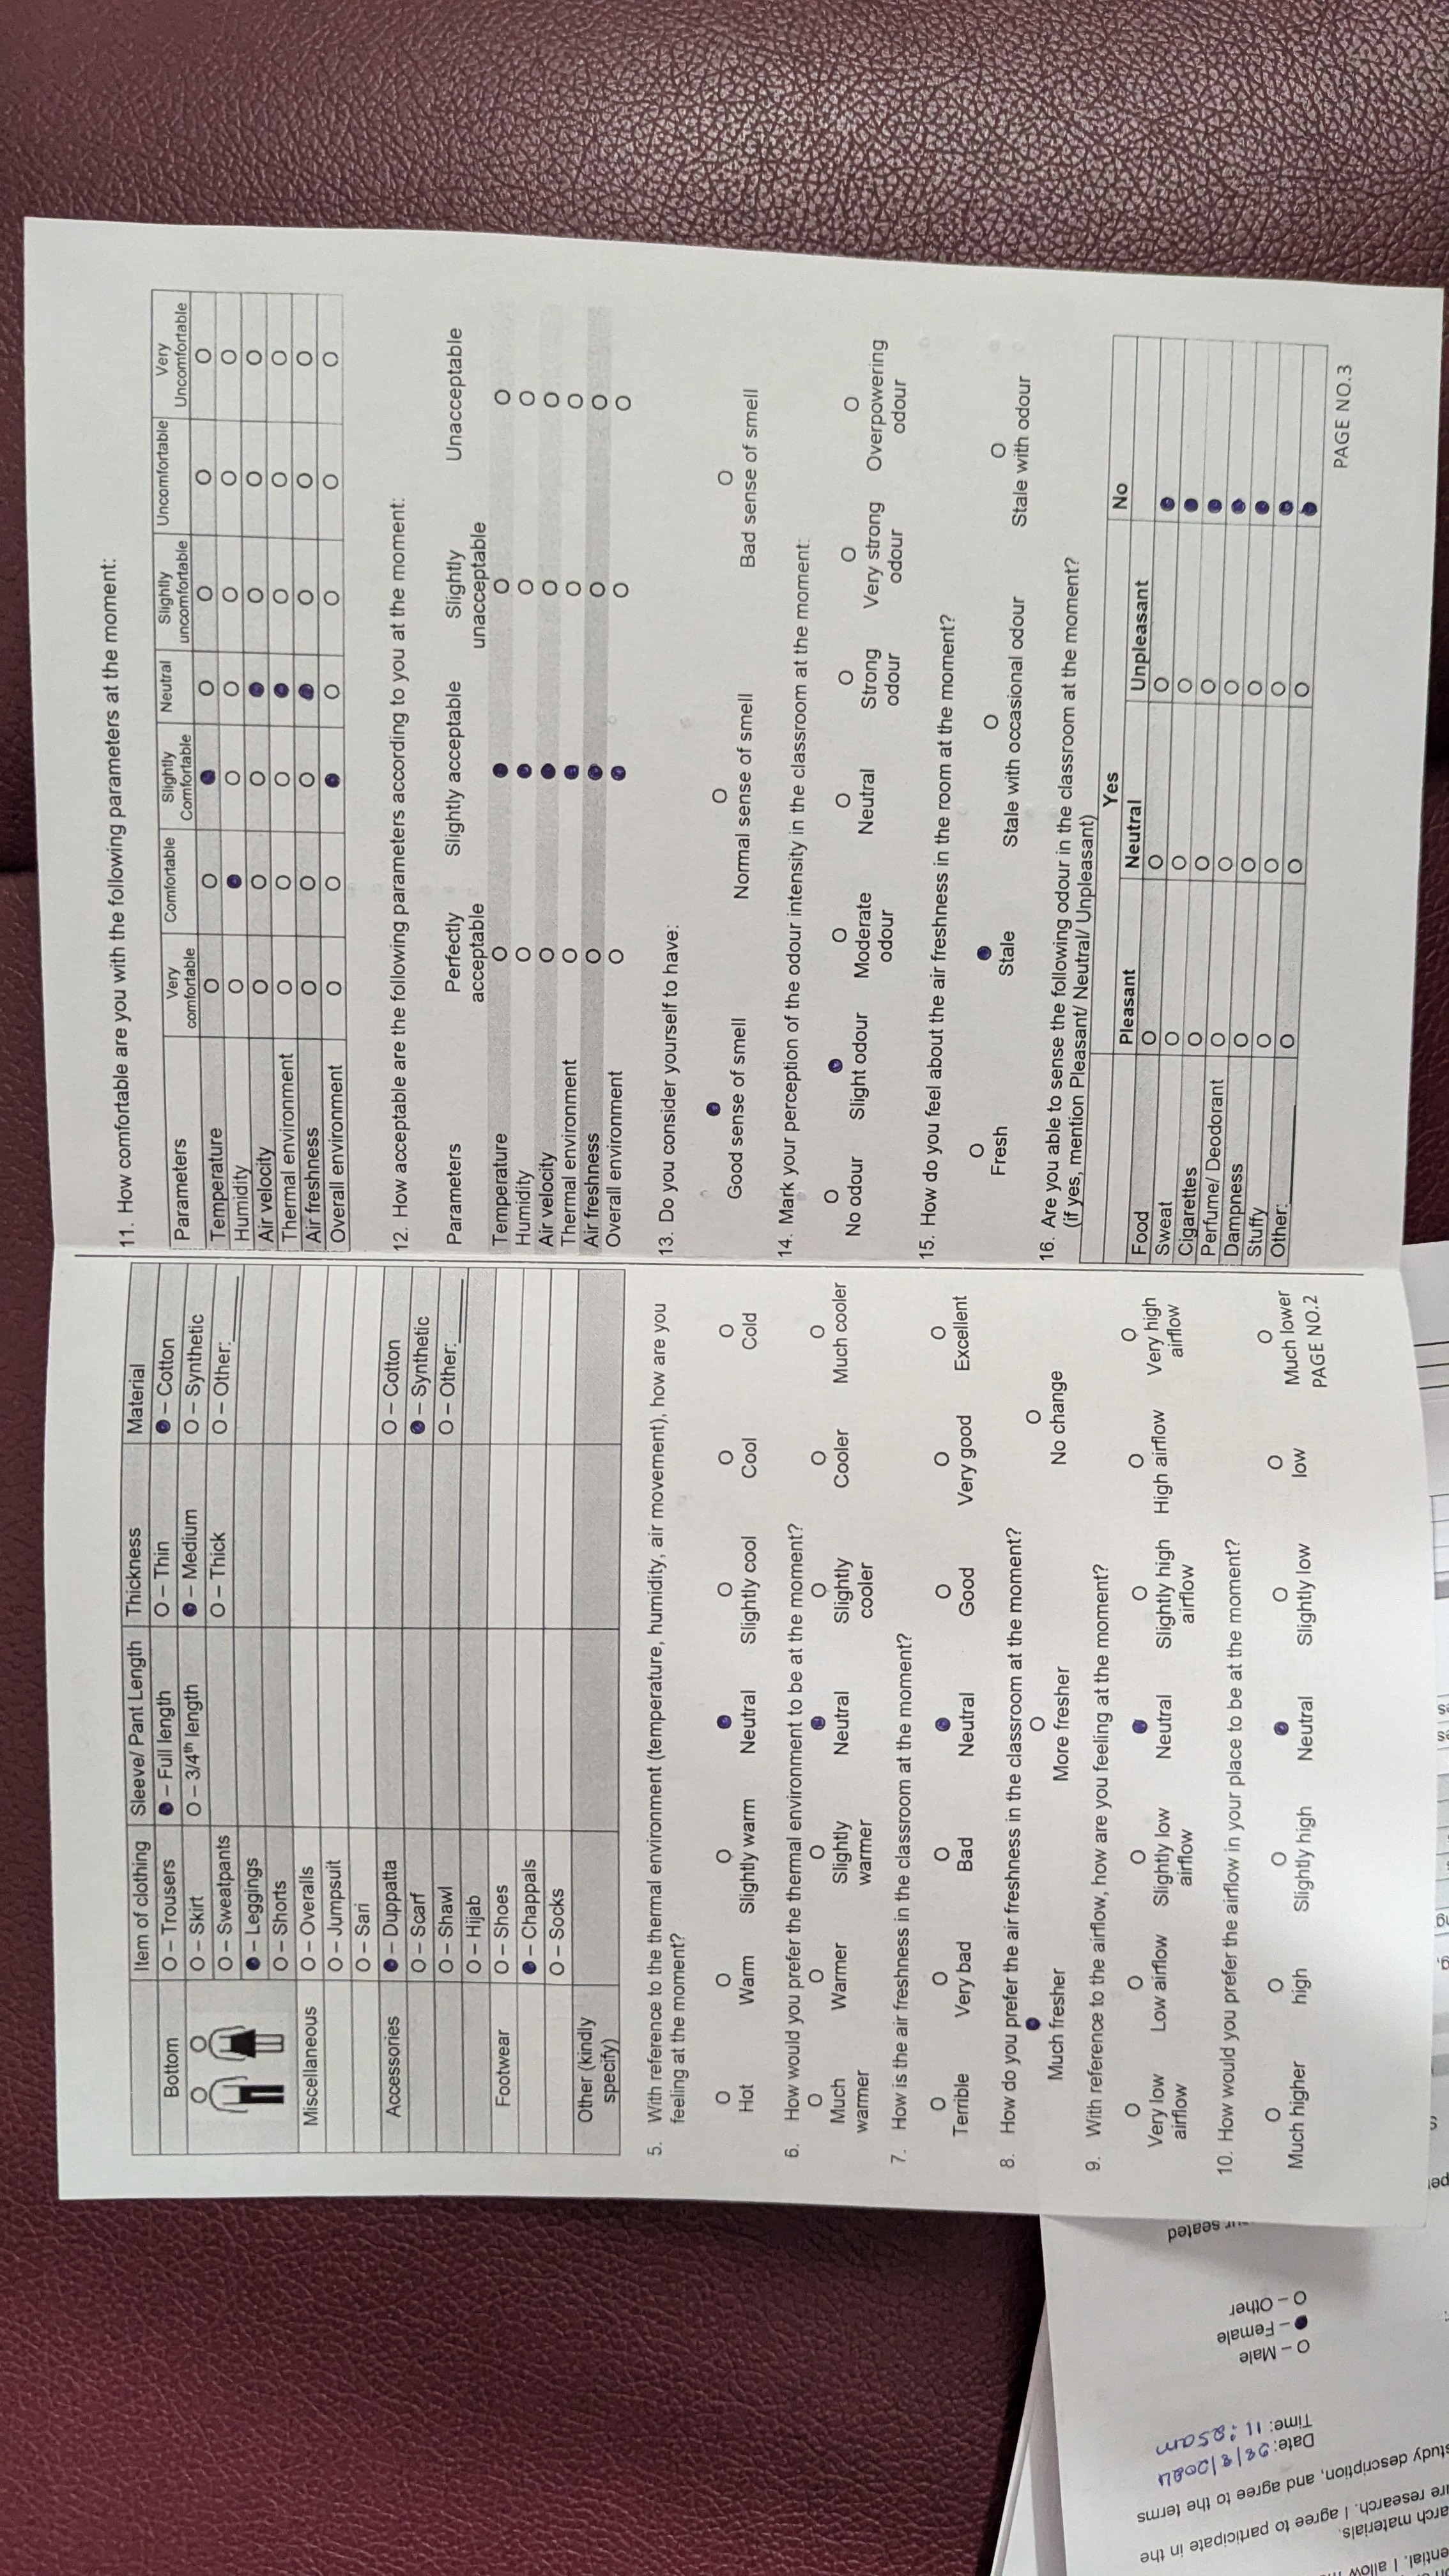 Item of clothing Sleeve/ Pant Length Thickness Material
Bottom O – Trousers ● – Full length O – Thin ● – Cotton
O – Skirt O – 3/4th length ● – Medium O – Synthetic
O – Sweatpants O – Thick O – Other:____
● – Leggings
O – Shorts
Miscellaneous O – Overalls
O – Jumpsuit
O – Sari
Accessories ● – Duppatta O – Cotton
O – Scarf ● – Synthetic
O – Shawl O – Other:____
O – Hijab
Footwear O – Shoes
● – Chappals
O – Socks
Other (kindly
specify)
5. With reference to the thermal environment (temperature, humidity, air movement), how are you
feeling at the moment?
O O O ● O O O
Hot Warm Slightly warm Neutral Slightly cool Cool Cold
6. How would you prefer the thermal environment to be at the moment?
O O O ● O O O
Much Warmer Slightly Neutral Slightly Cooler Much cooler
warmer warmer cooler
7. How is the air freshness in the classroom at the moment?
O O O ● O O O
Terrible Very bad Bad Neutral Good Very good Excellent
8. How do you prefer the air freshness in the classroom at the moment?
● O O
Much fresher More fresher No change
9. With reference to the airflow, how are you feeling at the moment?
O O O ● O O O
Very low Low airflow Slightly low Neutral Slightly high High airflow Very high
airflow airflow airflow airflow
10. How would you prefer the airflow in your place to be at the moment?
O O O ● O O O
Much higher high Slightly high Neutral Slightly low low Much lower
PAGE NO.2
11. How comfortable are you with the following parameters at the moment:
Parameters Very Comfortable Slightly Neutral Slightly Uncomfortable Very
comfortable Comfortable uncomfortable Uncomfortable
Temperature O O ● O O O O
Humidity O ● O O O O O
Air velocity O O O ● O O O
Thermal environment O O O ● O O O
Air freshness O O O ● O O O
Overall environment O O ● O O O O
12. How acceptable are the following parameters according to you at the moment:
Parameters Perfectly Slightly acceptable Slightly Unacceptable
acceptable unacceptable
Temperature O ● O O
Humidity O ● O O
Air velocity O ● O O
Thermal environment O ● O O
Air freshness O ● O O
Overall environment O ● O O
13. Do you consider yourself to have:
● O O
Good sense of smell Normal sense of smell Bad sense of smell
14. Mark your perception of the odour intensity in the classroom at the moment:
O ● O O O O O
No odour Slight odour Moderate Neutral Strong Very strong Overpowering
odour odour odour odour
15. How do you feel about the air freshness in the room at the moment?
O ● O O
Fresh Stale Stale with occasional odour Stale with odour
16. Are you able to sense the following odour in the classroom at the moment?
(if yes, mention Pleasant/ Neutral/ Unpleasant)
Yes No
Pleasant Neutral Unpleasant
Food O O O ●
Sweat O O O ●
Cigarettes O O O ●
Perfume/ Deodorant O O O ●
Dampness O O O ●
Stuffy O O O ●
Other:____ O O O ●
PAGE NO.3
seated
O – Male
● – Female
O – Other
Date: 28/8/2024
Time: 11:25am
study description, and agree to the terms
research. I agree to participate in the
materials.
I allow